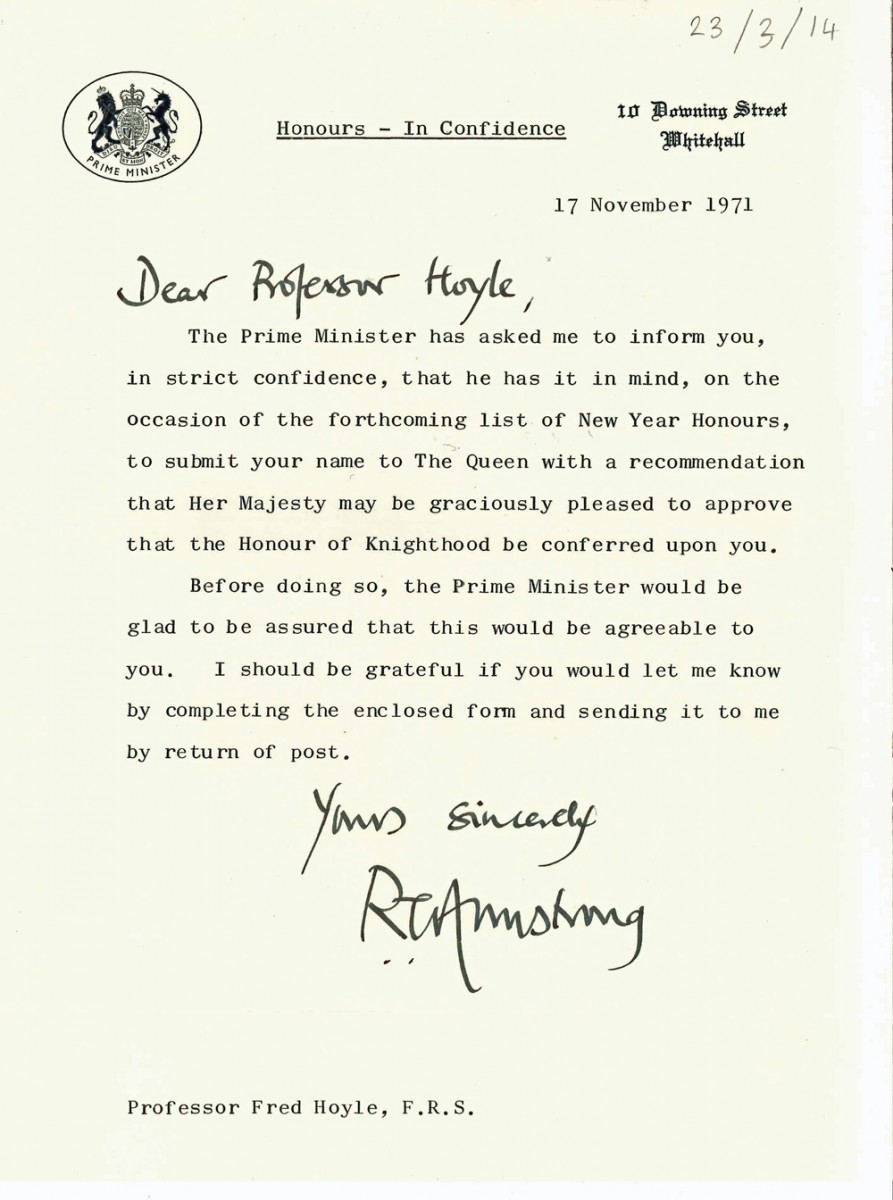 23/3/14
PRIME MINISTER
Honours - In Confidence
10 Downing Street
Whitehall
17 November 1971
Dear Professor Hoyle,
The Prime Minister has asked me to inform you,
in strict confidence, that he has it in mind, on the
occasion of the forthcoming list of New Year Honours,
to submit your name to The Queen with a recommendation
that Her Majesty may be graciously pleased to approve
that the Honour of Knighthood be conferred upon you.
Before doing so, the Prime Minister would be
glad to be assured that this would be agreeable to
you. I should be grateful if you would let me know
by completing the enclosed form and sending it to me
by return of post.
Yours sincerely
RTArmstrong
Professor Fred Hoyle, F.R.S.